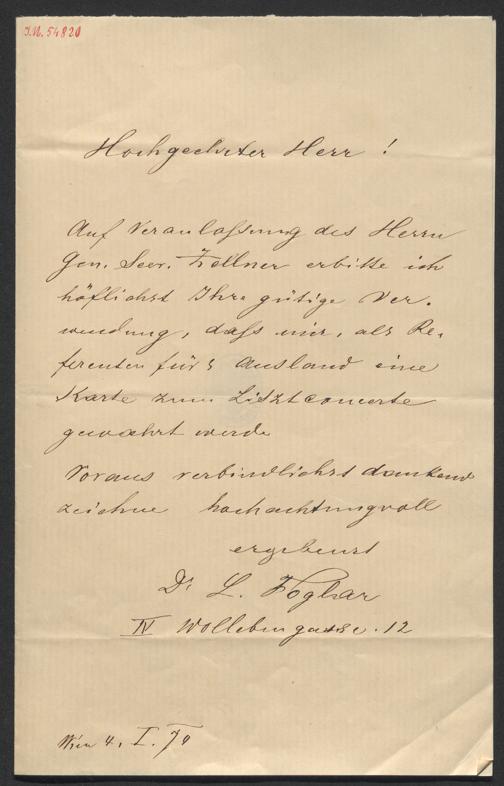 I.N. 54820
Hochgeehrter Herr!
Auf Veranlaßung des Herrn
Gen. Secr. Zellner erbitte ich
höflichst Ihre gütige Ver-
wendung, daß mir, als Re-
ferenten für's Ausland eine
Karte zum Lisztconcerte
gewährt werde
Voraus verbindlichst dankend
zeichne hochachtungsvoll
ergebenst
Dr L. Foglar
IV gasse. 12
Wien 4. I. 74